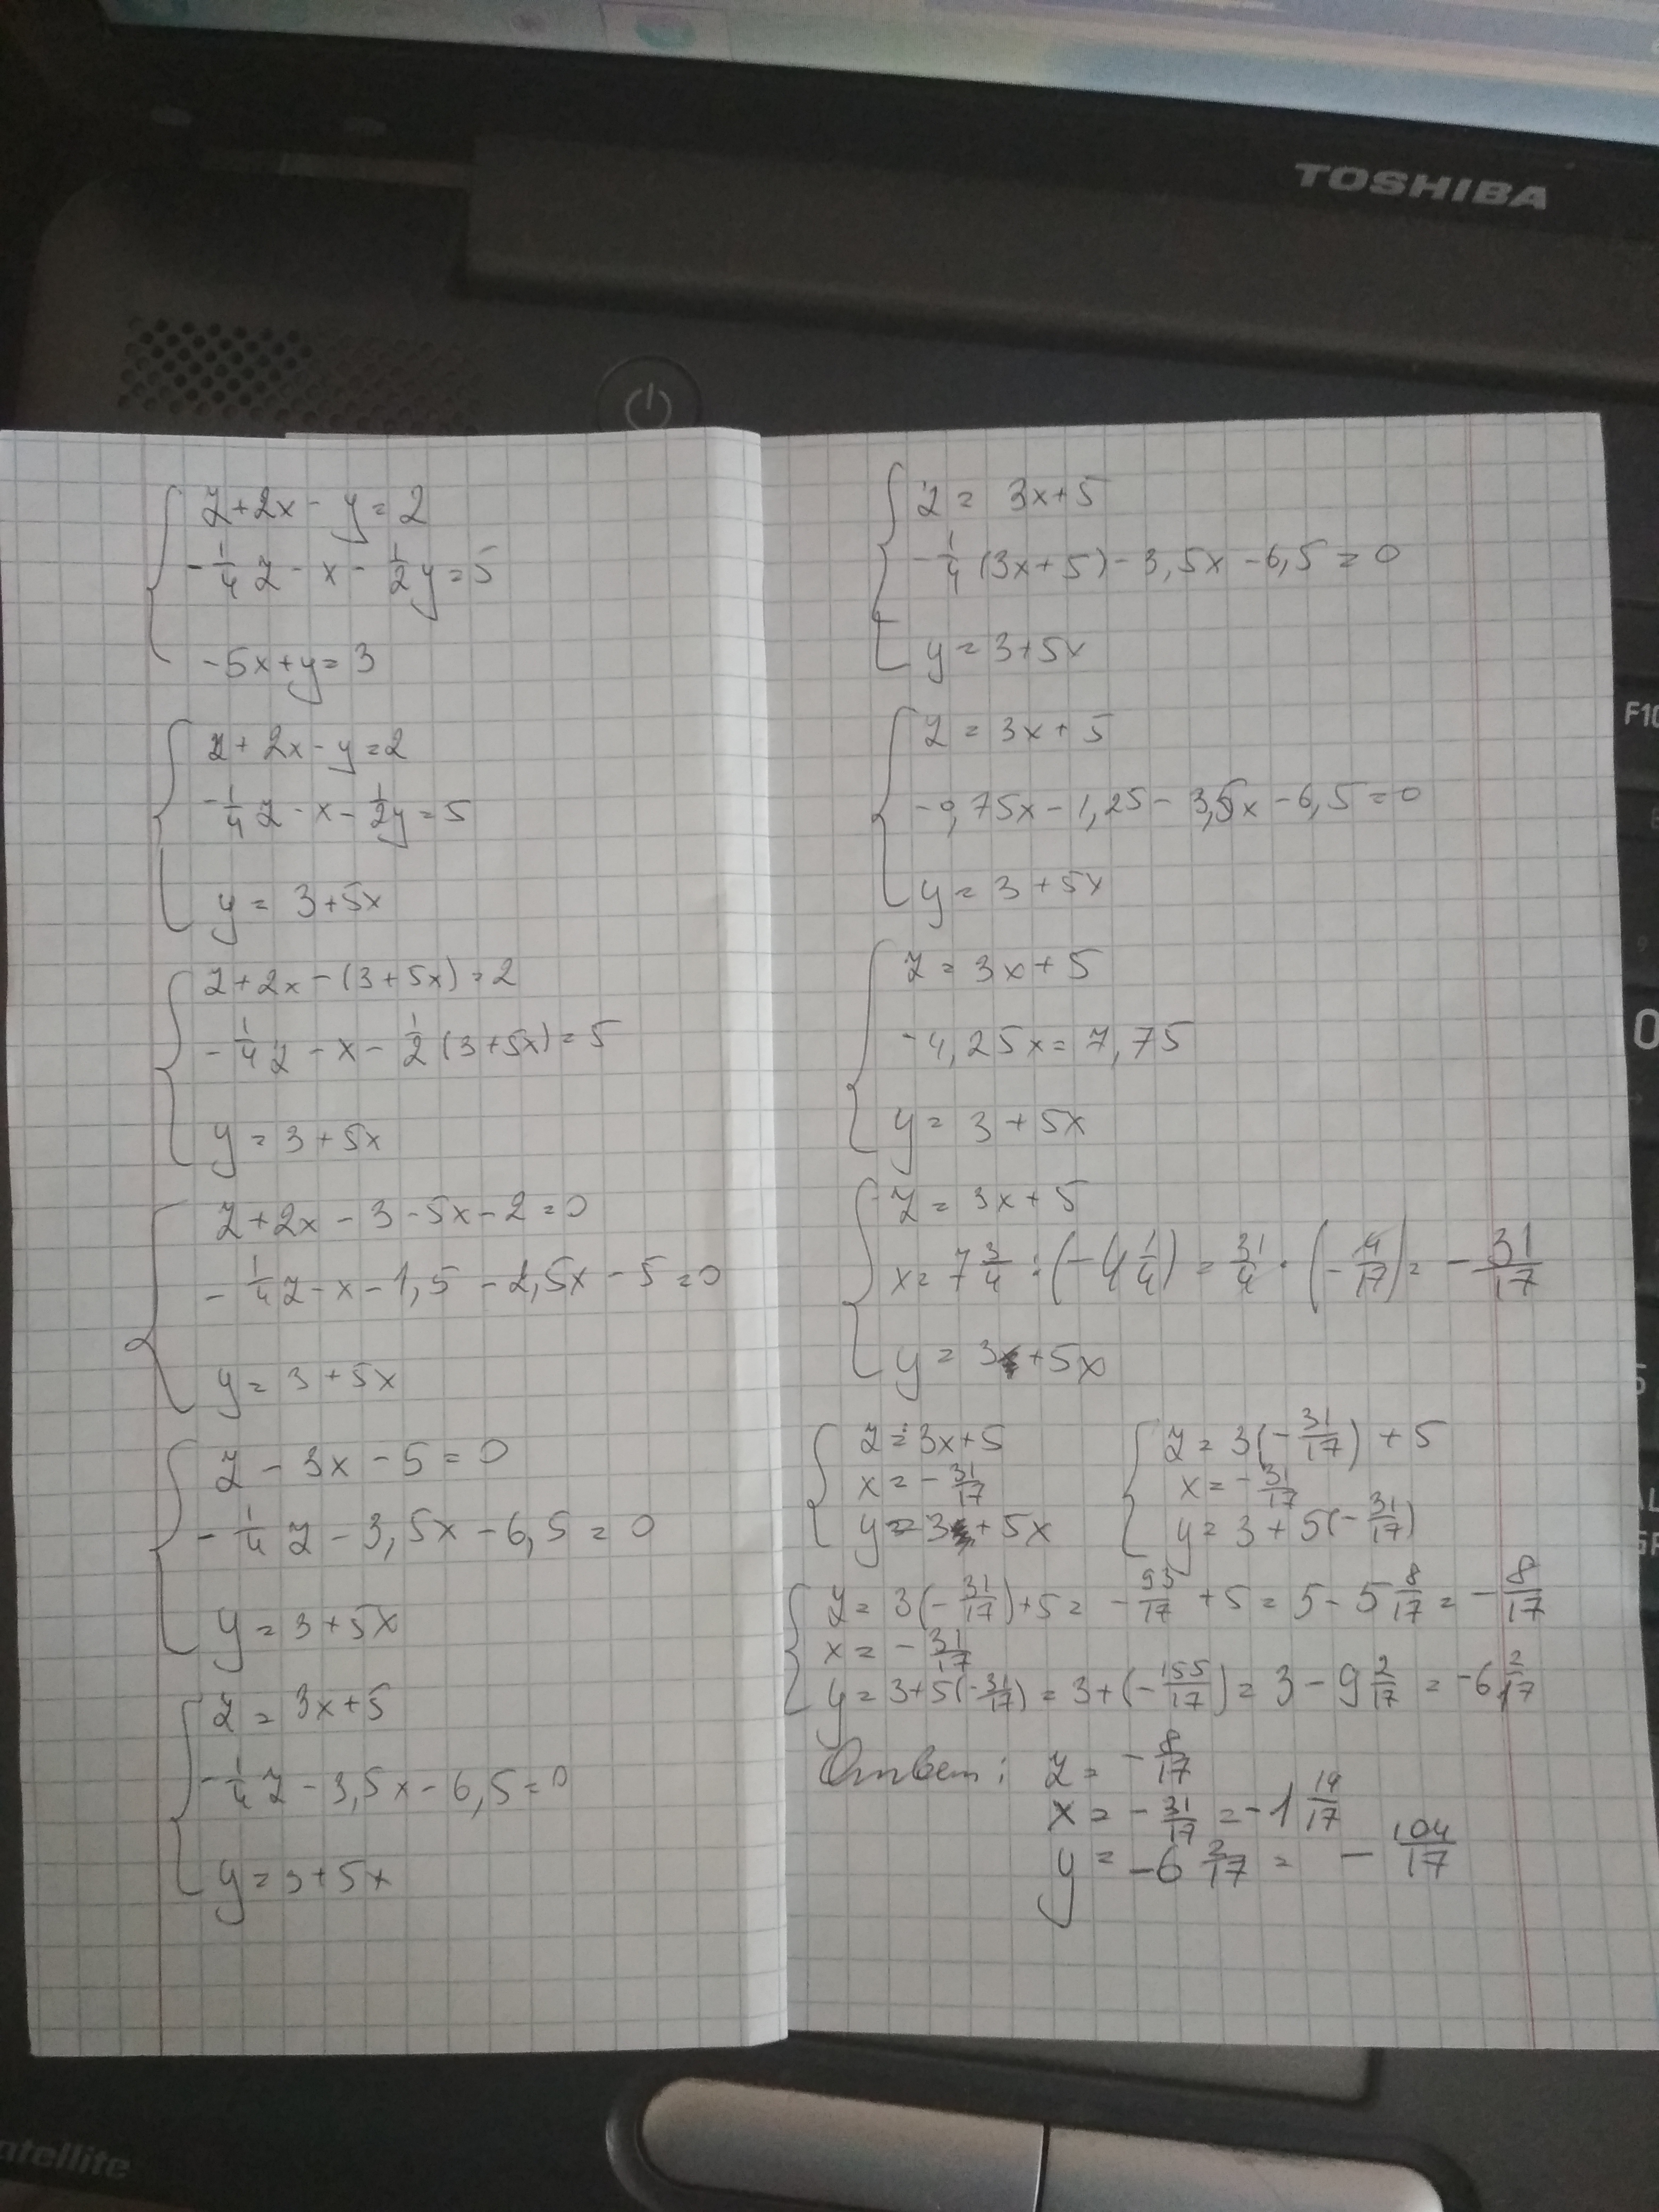 TOSHIBA
z+2x-y=2
-1/4 z - x - 1/2 y = 5
-5x+y=3
z+2x-y=2
-1/4 z - x - 1/2 y = 5
y = 3+5x
z+2x-(3+5x)=2
-1/4 z - x - 1/2 (3+5x) = 5
y = 3+5x
z+2x-3-5x-2=0
-1/4 z - x - 1,5 - 2,5x - 5 = 0
y = 3+5x
z - 3x - 5 = 0
-1/4 z - 3,5x - 6,5 = 0
y = 3+5x
z = 3x+5
-1/4 z - 3,5x - 6,5 = 0
y = 3+5x
z = 3x+5
-1/4 (3x+5) - 3,5x - 6,5 = 0
y = 3+5x
z = 3x+5
-0,75x - 1,25 - 3,5x - 6,5 = 0
y = 3+5x
z = 3x+5
-4,25x = 7,75
y = 3+5x
z = 3x+5
x = 7 3/4 : (-4 1/4) = 31/4 · (-4/17) = -31/17
y = 3+5x
z = 3x+5
x = -31/17
y = 3+5x
z = 3(-31/17)+5
x = -31/17
y = 3+5(-31/17)
z = 3(-31/17)+5 = -93/17 +5 = 5 - 5 8/17 = -8/17
x = -31/17
y = 3+5(-31/17) = 3+(-155/17) = 3 - 9 2/17 = -6 2/17
Ответ: z = -8/17
x = -31/17 = -1 14/17
y = -6 2/17 = -104/17
F10
0
atellite